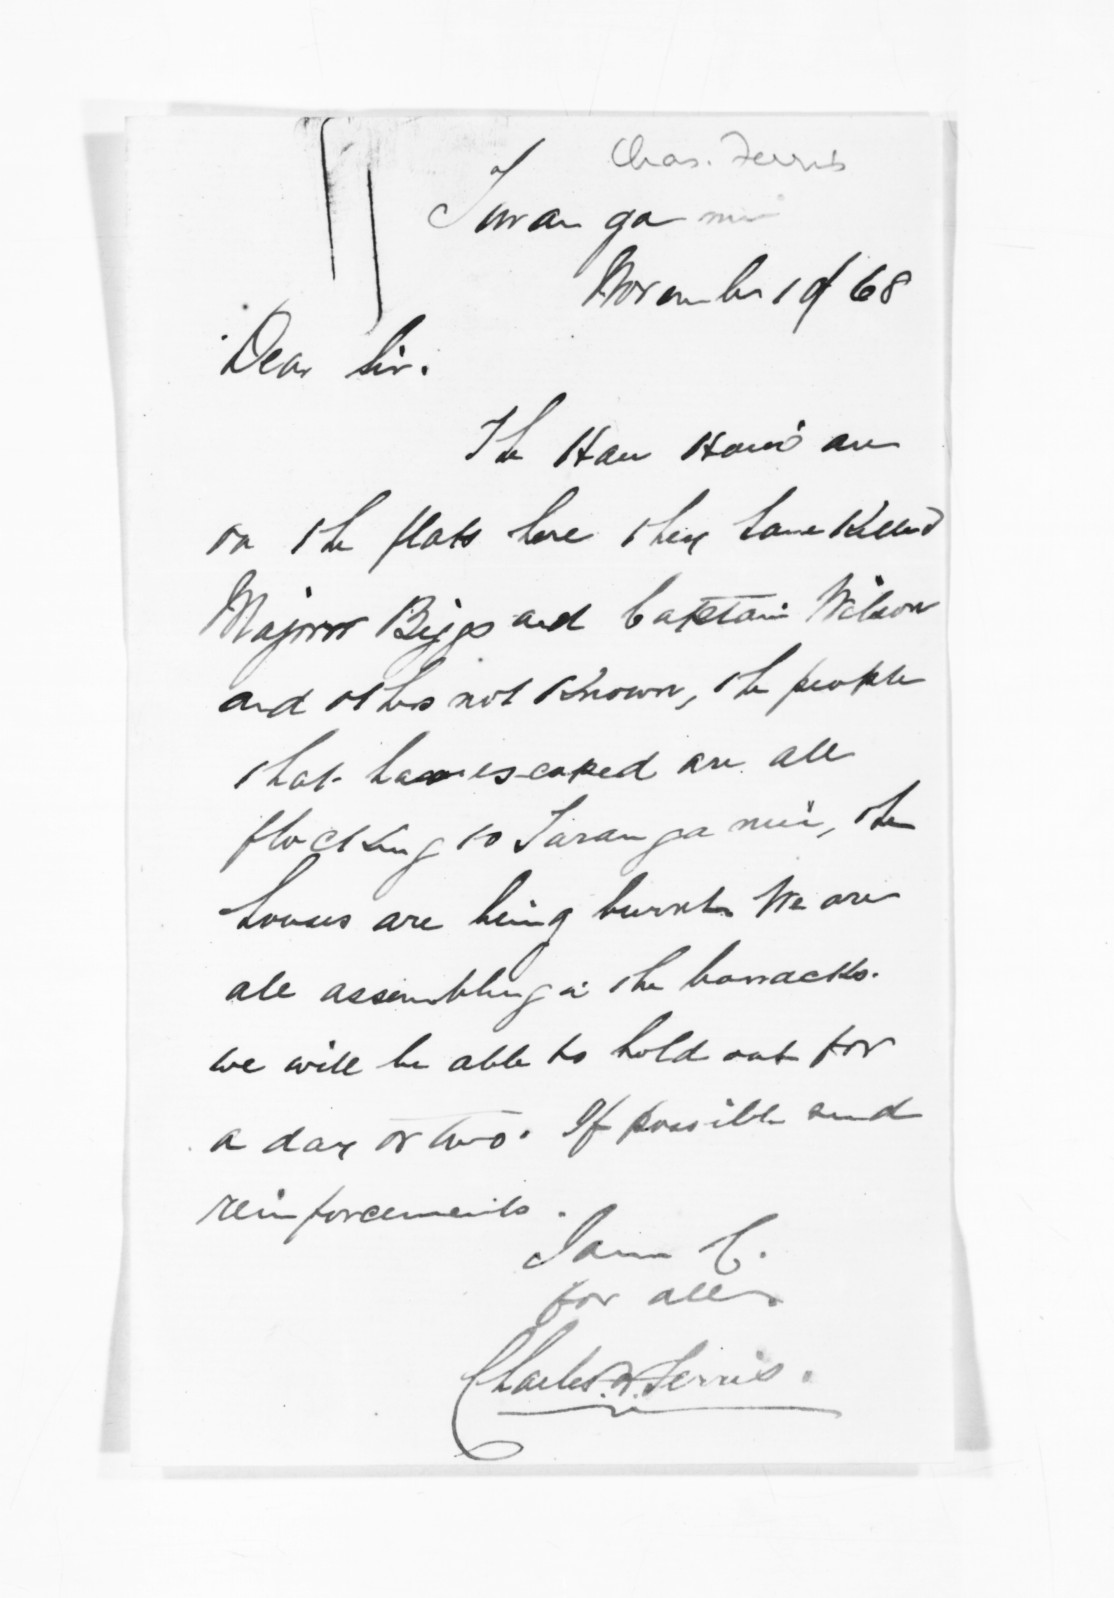 Chas. Ferris
Turanganui
November 10/68
Dear Sir.
The Hau Hau's are
on the flats here they have Killed
Majorr Biggs and Captain Wilson
and others not Known, the people
that have escaped are all
flocking to Turanganui, the
houses are being burnt. We are
all assembling in the barracks.
we will be able to hold out for
a day or two. If possible send
reinforcements.
for all
Charles. Ferris.